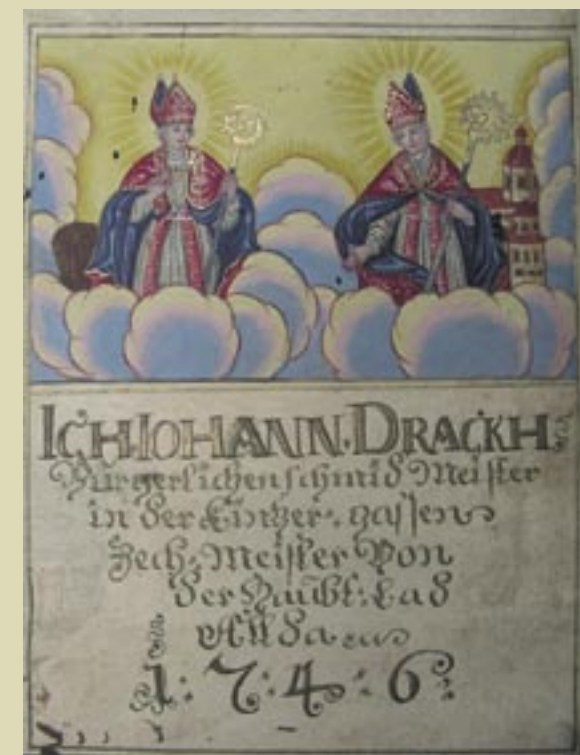 ICH IOHANN·DRACKH
Bürgerlichen schmid Meister
in der gassen
Zech: Meister Von
der Lad
Allda
1:7:4:6: